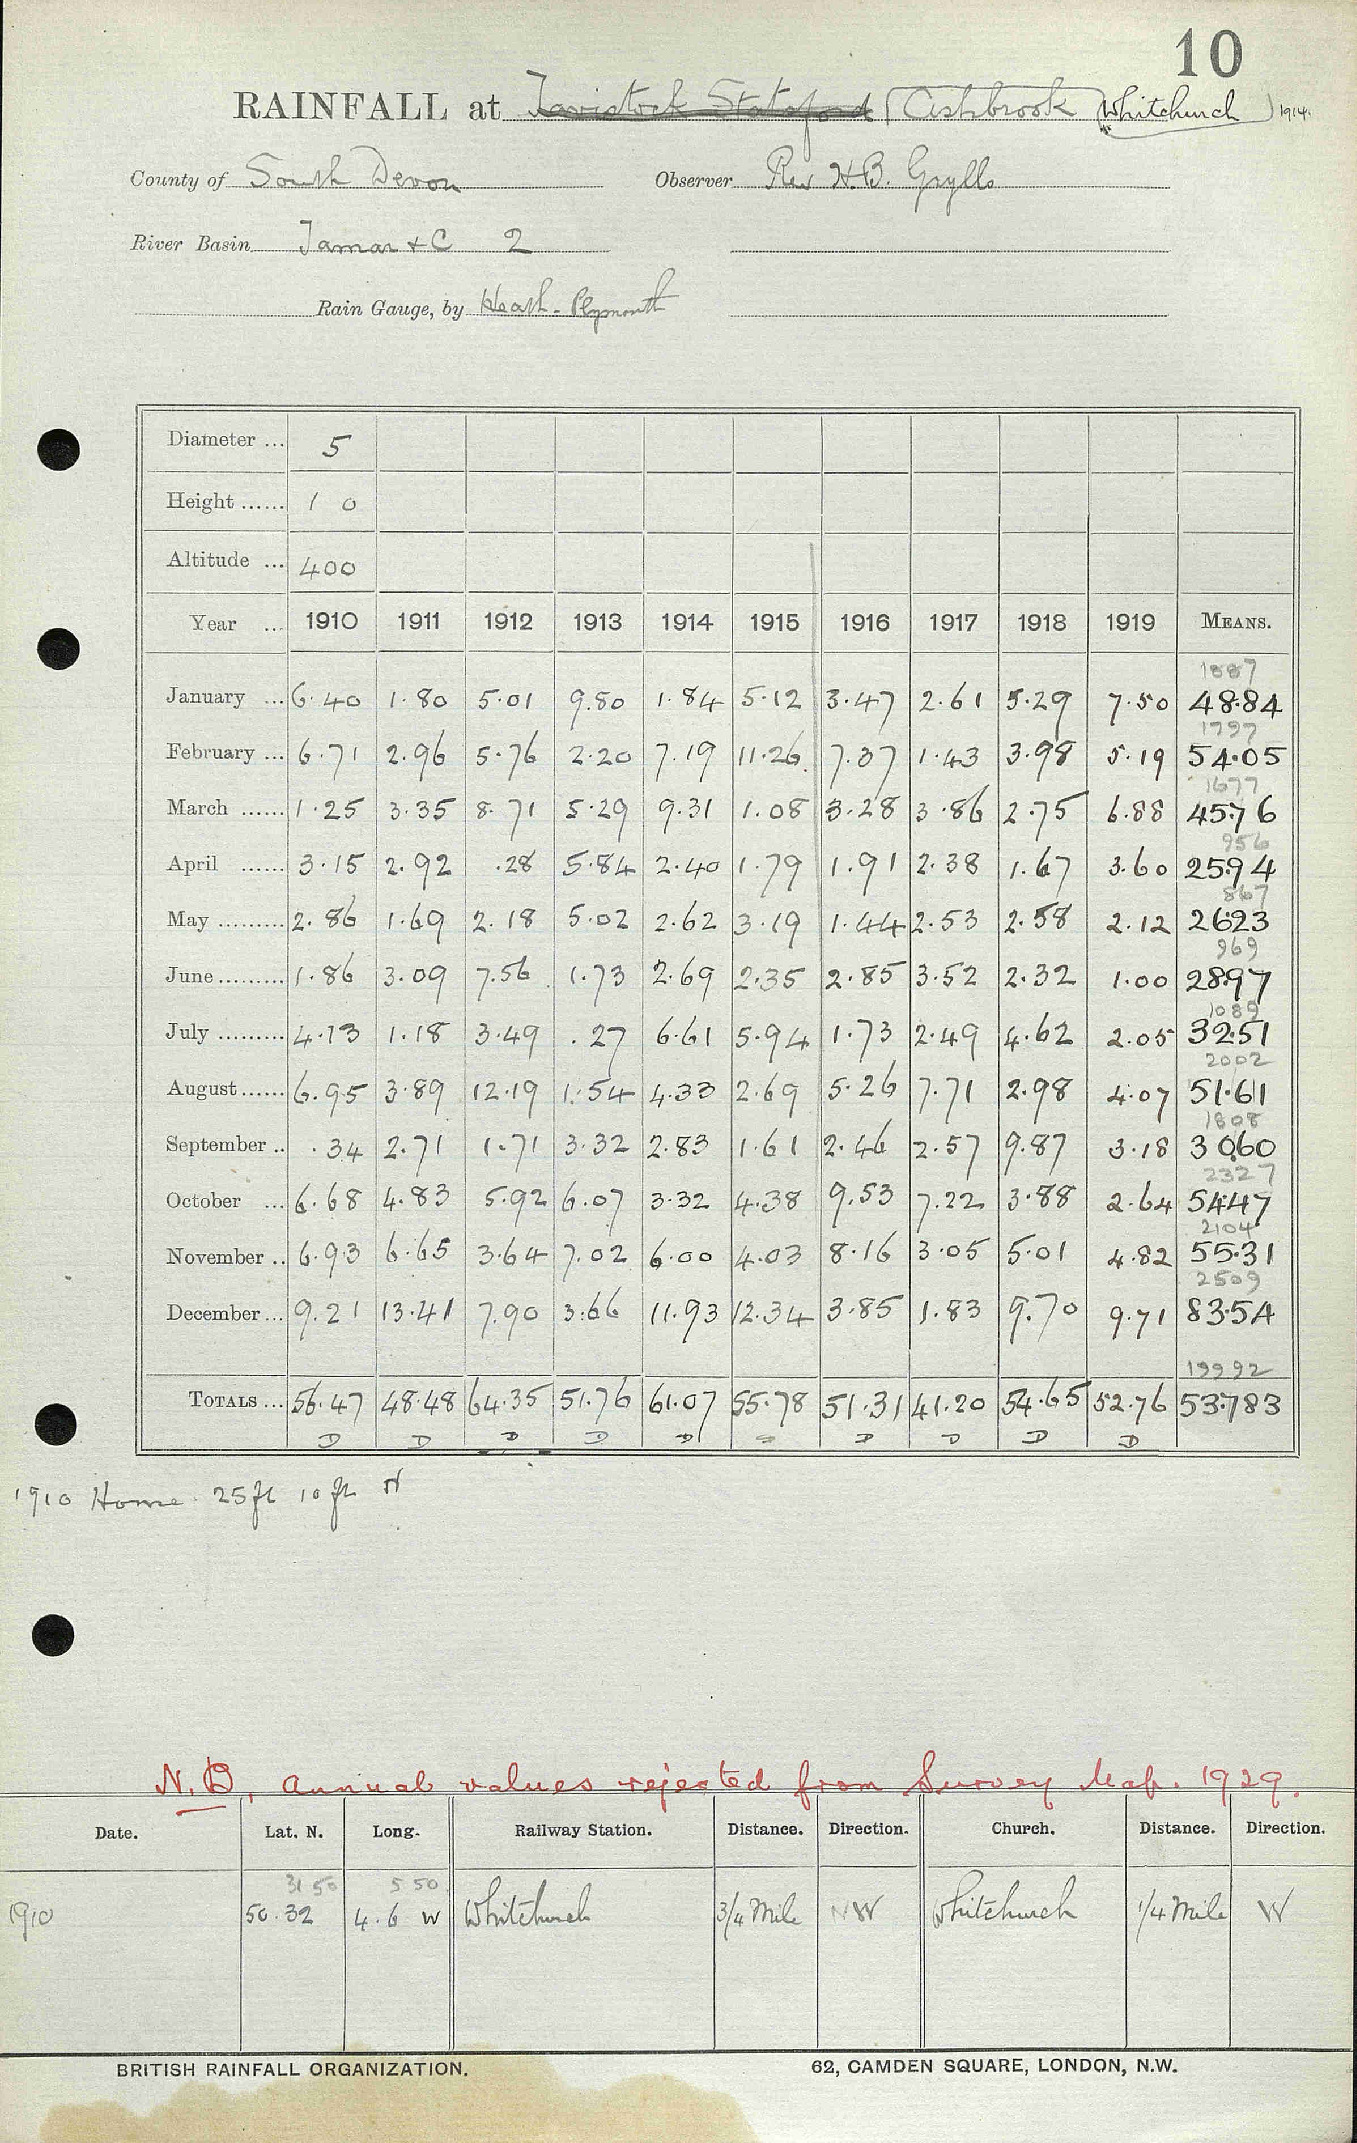 10
RAINFALL at Tavistock Statsford (Ashbrook (Whitchurch) 1914.
County of South Devon Observer Rev H.B. Grylls
River Basin Tamar + C 2
Rain Gauge, by Heath - Plymouth
Diameter ... 5
Height ...... 1 0
Altitude ... 400
Year ... 1910 1911 1912 1913 1914 1915 1916 1917 1918 1919 MEANS.
1887
January ... 6.40 1.80 5.01 9.80 1.84 5.12 3.47 2.61 5.29 7.50 48.84
1797
February ... 6.71 2.96 5.76 2.20 7.19 11.26 7.37 1.43 3.98 5.19 54.05
1677
March ...... 1.25 3.35 8.71 5.29 9.31 1.08 3.28 3.86 2.75 6.88 45.76
956
April ...... 3.15 2.92 .28 5.84 2.40 1.79 1.91 2.38 1.67 3.60 25.94
867
May ......... 2.86 1.69 2.18 5.02 2.62 3.19 1.44 2.53 2.58 2.12 26.23
969
June ......... 1.86 3.09 7.56 1.73 2.69 2.35 2.85 3.52 2.32 1.00 28.97
1089
July ......... 4.13 1.18 3.49 .27 6.61 5.94 1.73 2.49 4.62 2.05 32.51
2002
August ...... 6.95 3.89 12.19 1.54 4.33 2.69 5.26 7.71 2.98 4.07 51.61
1808
September .. .34 2.71 1.71 3.32 2.83 1.61 2.46 2.57 9.87 3.18 30.60
2327
October ... 6.68 4.83 5.92 6.07 3.32 4.38 9.53 7.22 3.88 2.64 54.47
2104
November .. 6.93 6.65 3.64 7.02 6.00 4.03 8.16 3.05 5.01 4.82 55.31
2509
December ... 9.21 13.41 7.90 3.66 11.93 12.34 3.85 1.83 9.70 9.71 83.54
19992
TOTALS ... 56.47 48.48 64.35 51.76 61.07 55.78 51.31 41.20 54.65 52.76 537.83
D D D D D D D D D D
1910 Home 25ft 10ft H
N.B. Annual values rejected from Survey Map. 1929.
Date. Lat. N. Long. Railway Station. Distance. Direction. Church. Distance. Direction.
31 50 5 50
1910 50.32 4.6 W Whitchurch 3/4 Mile NW Whitchurch 1/4 Mile W
BRITISH RAINFALL ORGANIZATION. 62, CAMDEN SQUARE, LONDON, N.W.